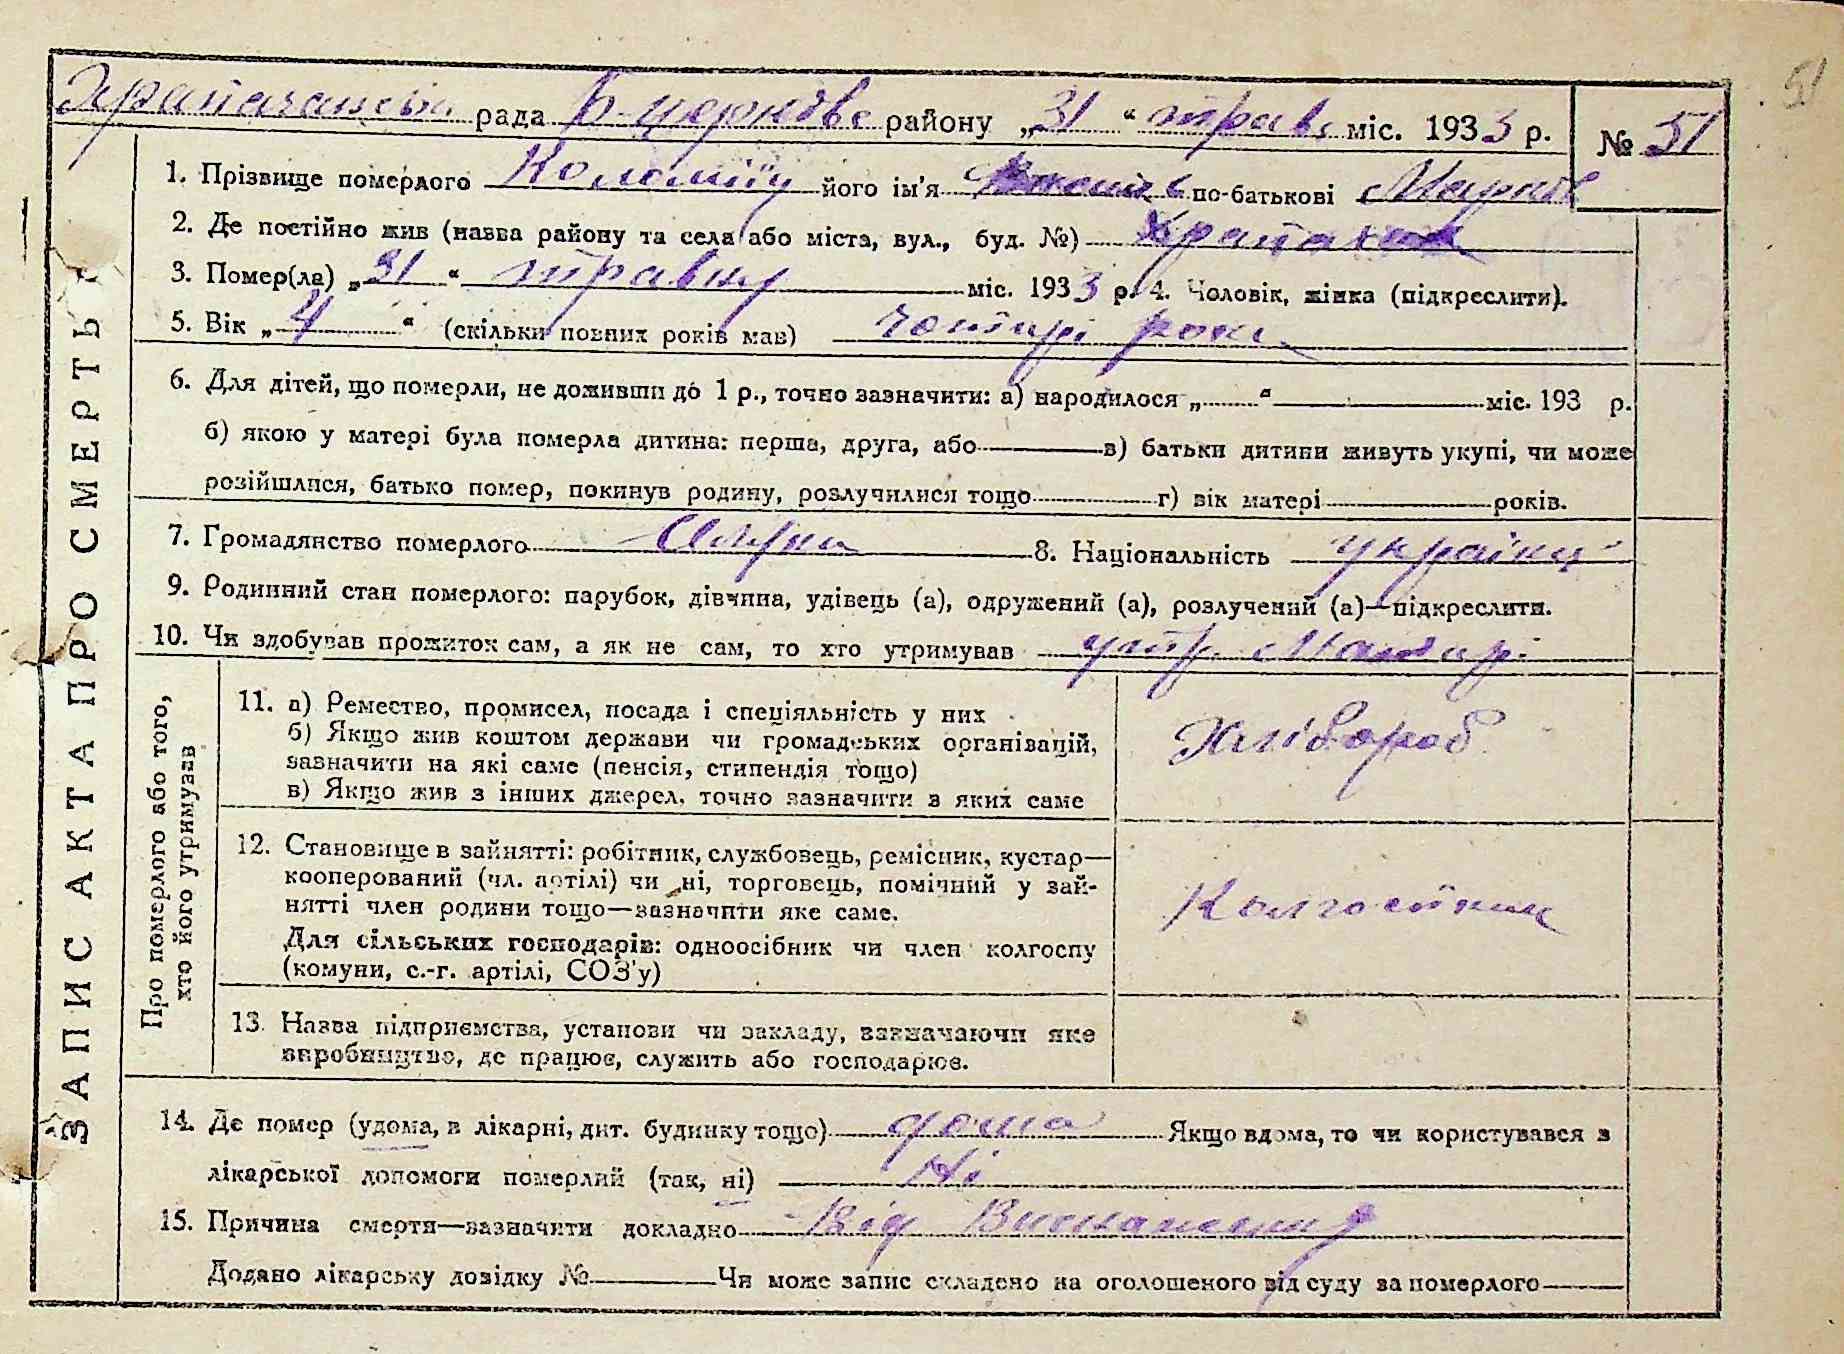 51
Храпачанська рада Б-Церківс району „31“ травс міс. 1933 р. № 51
1. Прізвище померлого Коломієц його ім'я по-батькові Марків
2. Де постійно жив (назва району та села або міста, вул., буд. №) Храпачах
3. Помер(ла) „31“ травня міс. 1933 р. 4. Чоловік, жінка (підкреслити).
5. Вік „4“ (скільки повних років мав) чотирі роки
6. Для дітей, що померли, не доживши до 1 р., точно зазначити: а) народилося „ “ міс. 193 р.
б) якою у матері була померла дитина: перша, друга, або в) батьки дитини живуть укупі, чи може
розійшлися, батько помер, покинув родину, розлучилися тощо г) вік матері років.
7. Громадянство померлого 8. Національність україц
9. Родинний стан померлого: парубок, дівчина, удівець (а), одружений (а), розлучений (а)—підкреслити.
10. Чи здобував прожиток сам, а як не сам, то хто утримував утр. Матирі
ЗАПИС АКТА ПРО СМЕРТЬ
Про померлого або того,
хто його утримував
11. а) Ремество, промисел, посада і спеціяльність у них
б) Якщо жив коштом держави чи громадських організацій,
зазначити на які саме (пенсія, стипендія тощо)
в) Якщо жив з інших джерел, точно зазначити з яких саме
Хлібороб
12. Становище в зайнятті: робітник, службовець, ремісник, кустар—
кооперований (чл. артілі) чи ні, торговець, помічний у зай-
нятті член родини тощо—зазначити яке саме.
Для сільських господарів: одноосібник чи член колгоспу
(комуни, с.-г. артілі, СОЗ'у)
Колгоспник
13. Назва підприємства, установи чи закладу, зазначаючи яке
виробництво, де працює, служить або господарює.
14. Де помер (удома, в лікарні, дит. будинку тощо) дома Якщо вдома, то чи користувався з
лікарської допомоги померлий (так, ні) Ні
15. Причина смерти—зазначити докладно Від Виснаження
Додано лікарську довідку № Чи може запис складено на оголошеного від суду за померлого